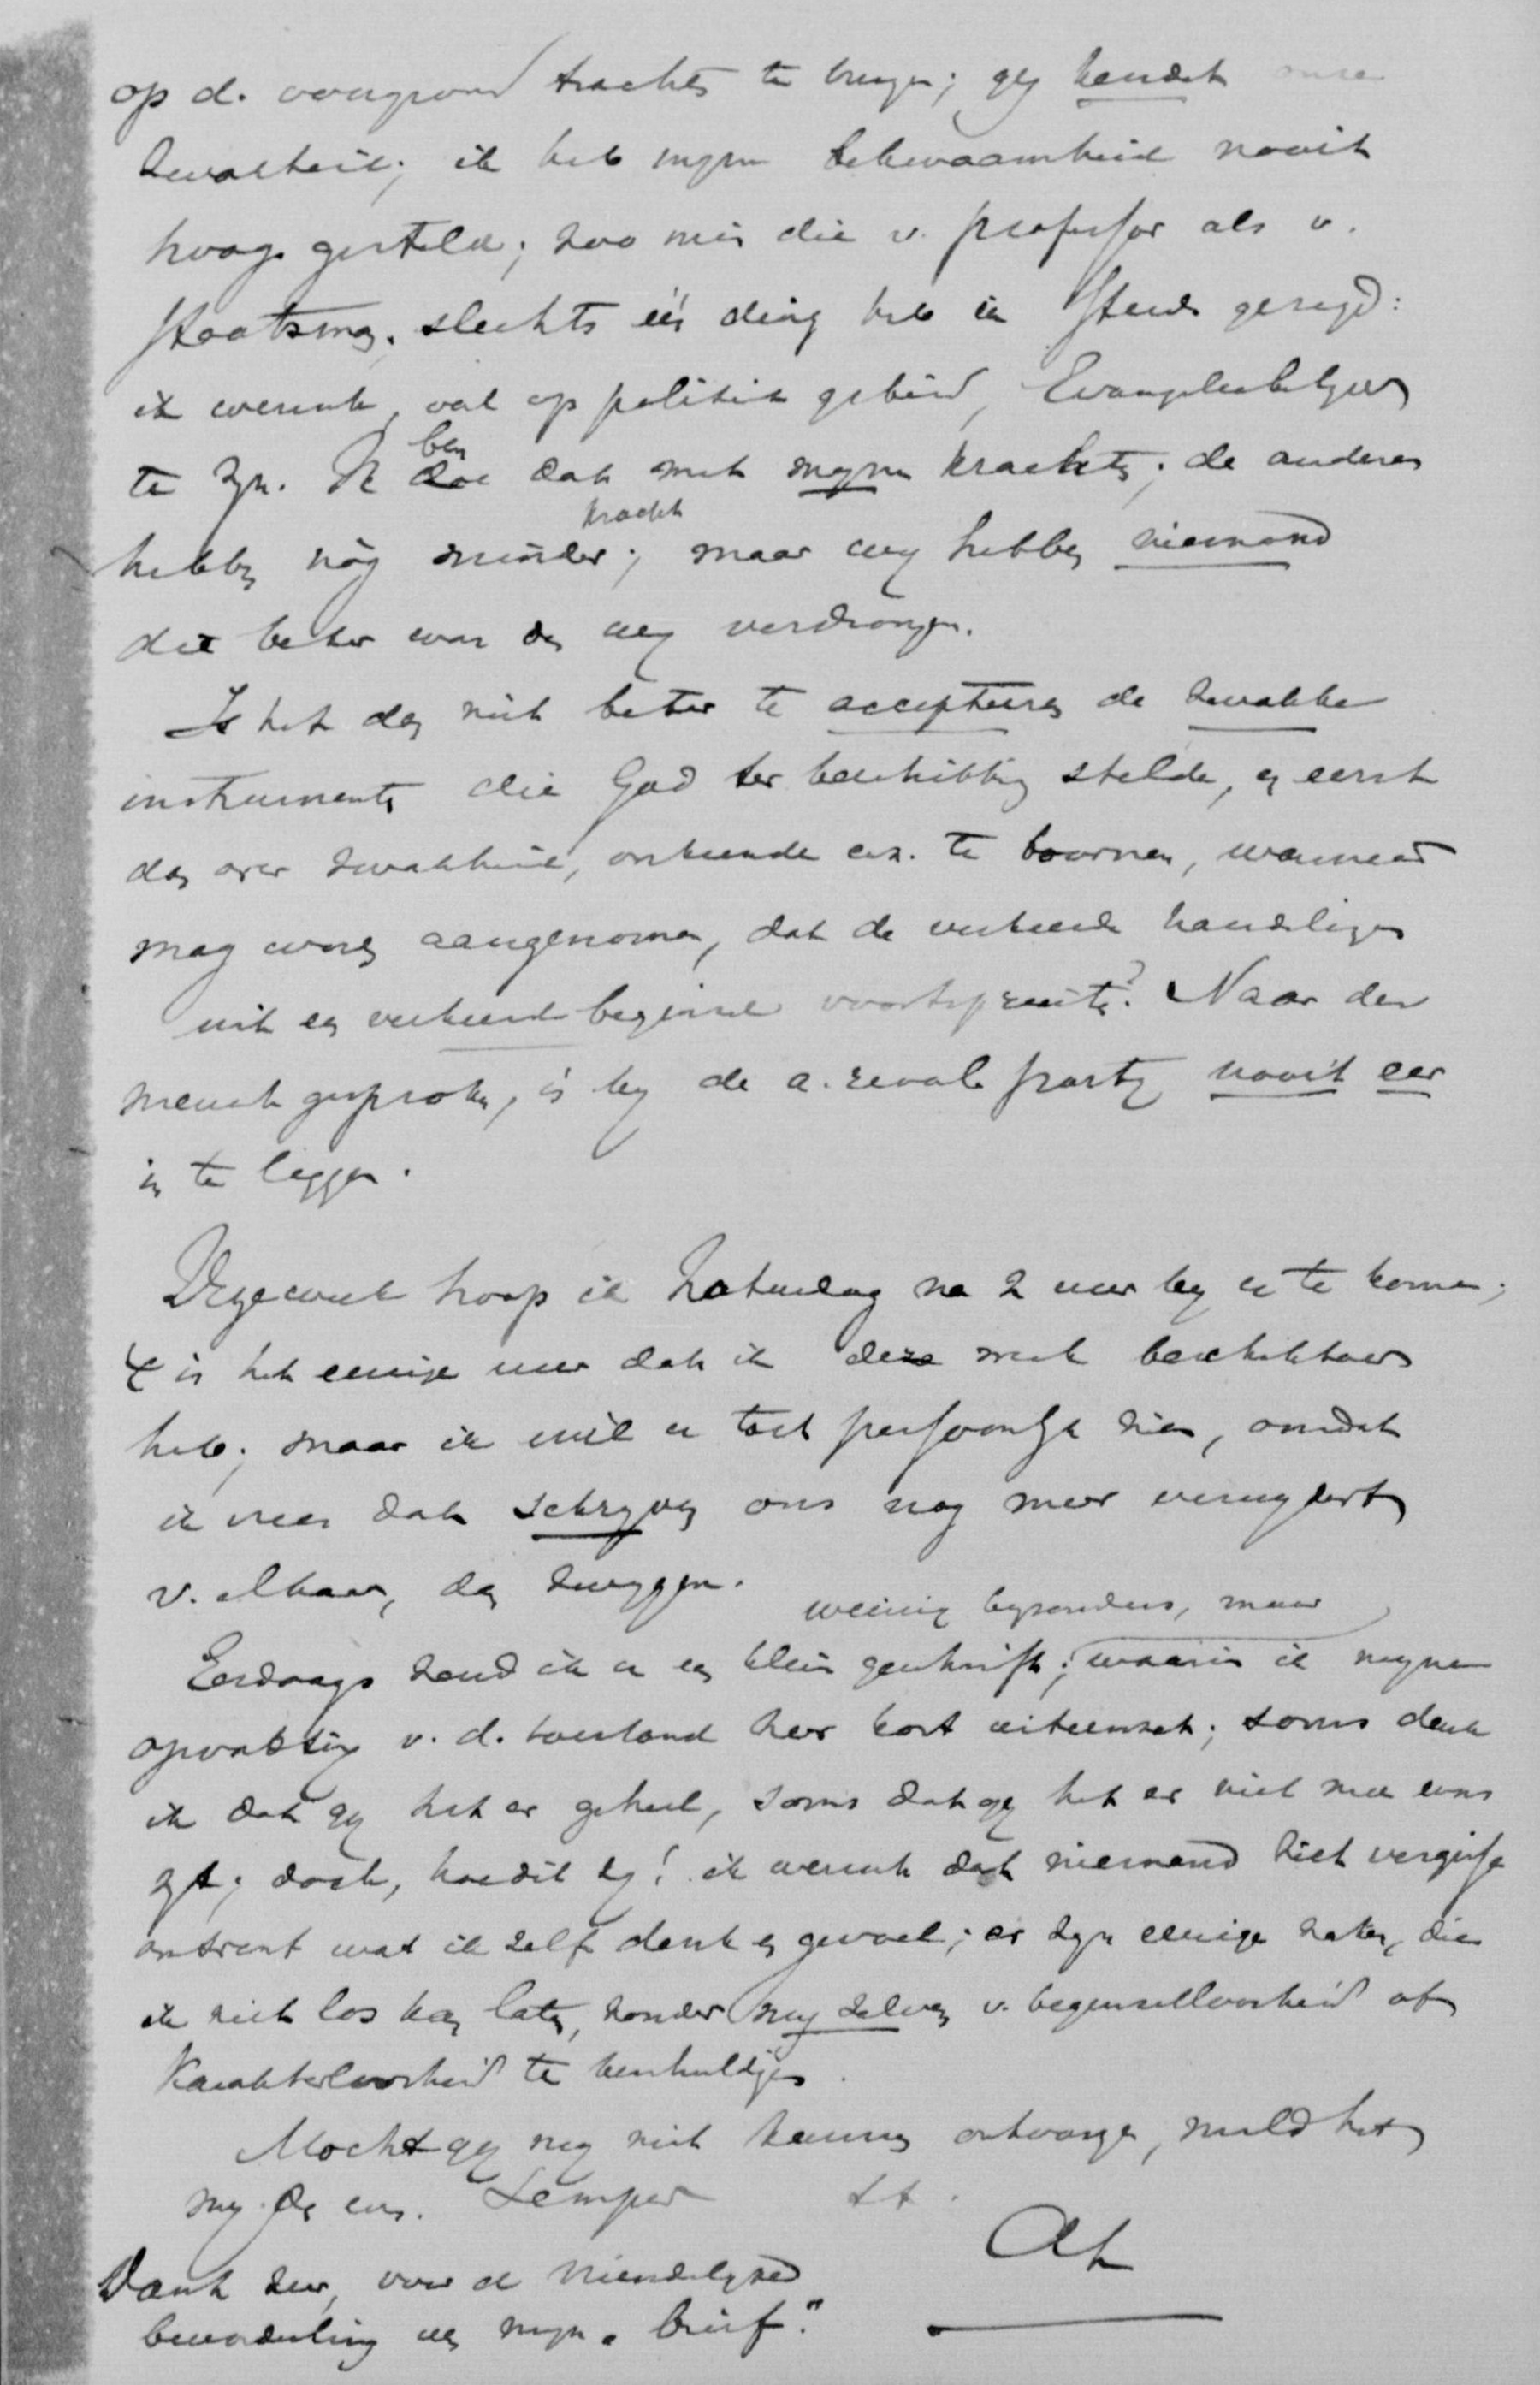 op d. voorgrond trachten te brengen; gy kendet onze
zwakheid; ik heb myne bekwaamheid nooit
hoog gesteld; zoo min die v. professor als v.
staatsman. slechts één ding heb ik steeds gezegd:
ik wensch, ook op politiek gebied, Evangeliebelyder
te zyn. Ik ben dat met myne krachten; de anderen
hebben nóg minder kracht; maar wy hebben niemand
die beter was dan wy verdrongen.
Is het dan niet beter te accepteeren de zwakke
instrumenten die God ter beschikking stelde, en eerst
dan over zwakheid, enz. te toornen, wanneer
mag worden aangenomen, dat de verkeerde handelingen
uit een verkeerd beginsel voortspruiten? Naar den
mensch gesproken, is by de a. revol. party nooit eer
in te leggen.
Deze week hoop ik Zaturdag na 2 uur by u te komen;
't is het eenige uur dat ik deze week beschikbaar
heb; maar ik wil u toch persoonlyk zien, omdat
ik vrees dat schryven ons nog meer verwydert
v. elkaar, dan zwygen.
Eerdaags zend ik u een klein geschrift; weinig byzonders, maar waarin ik myne
opvatting v. d. toestand zeer kort uiteenzet; soms denk
ik dat gy het er geheel, soms dat gy het er niet mee eens
zyt; doch, hoe dit zy! ik wensch dat niemand zich vergisse
omtrent wat ik zelf denk en gevoel; er zyn eenige zaken, die
ik niet los kan laten, zonder my zelven v. beginselloosheid of
karakterloosheid te beschuldigen.
Mocht gy my niet kunnen ontvangen, meld het
my dan even. Semper
tt.
Dank zeer, voor de vriendelyke
beoordeeling van myn "brief".